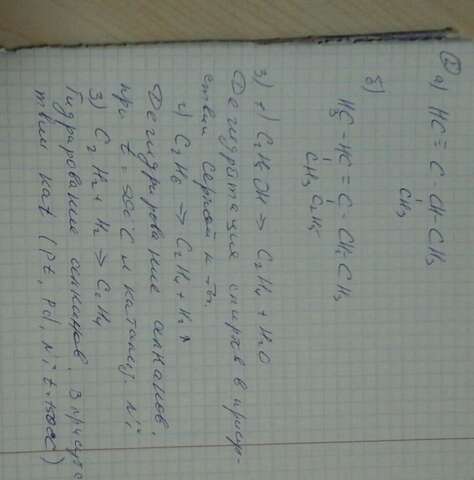 ② а) HC ≡ C - CH - CH3
CH3
б)
H3C - HC = C - CH2CH3
CH3 C2H5
3) 1) C2H5OH → C2H4 + H2O
Дегидратация спирта в присут-
ствии серной к-ты.
2) C2H6 → C2H4 + H2↑
Дегидрирование алканов.
при t = 500°C и катализ. Ni
3) C2H2 + H2 → C2H4
Гидрирование алкинов. В присутс
твии кат (Pt, Pd, Ni t=150°C)